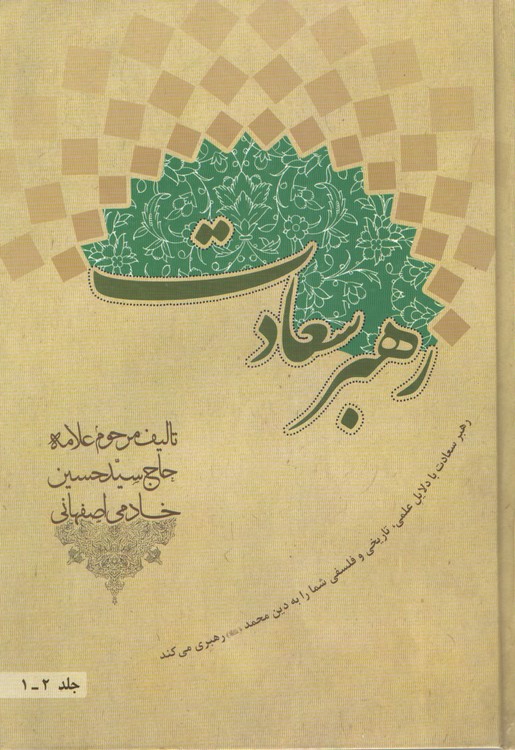 رهبر سعادت
تالیف مرحوم علامه
حاج سیّد حسین
خادمی اصفهانی
رهبر سعادت با دلایل علمی، تاریخی و فلسفی شما را به دین محمد (ﷺ) رهبری می‌کند
جلد ۲ـ۱